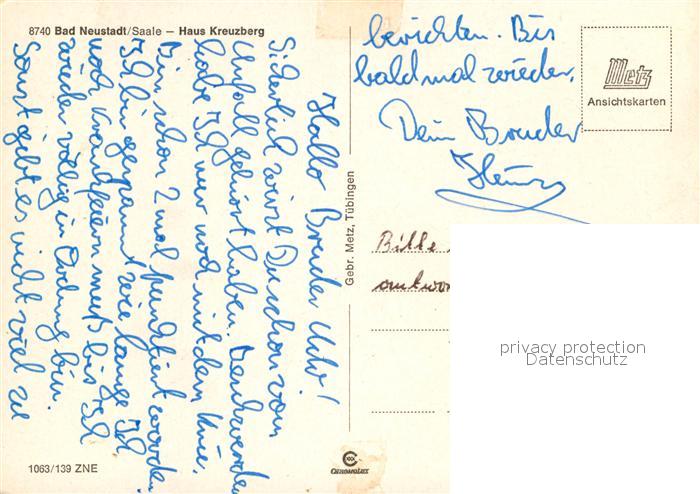 8740 Bad Neustadt/Saale — Haus Kreuzberg
Hallo Bruder Udo!
Sicherlich wirst Du schon vom
Unfall gehört haben. Beschwerden
habe Ich nur noch mit dem Knie.
Bin schon 2 mal punktiert worden.
Ich bin gespannt wie lange Ich
noch krankfeiern muß bis Ich
wieder völlig in Ordnung bin.
Sonst gibt es nicht viel zu
berichten. Bis
bald mal wieder.
Dein Bruder
Heinz
Metz
Ansichtskarten
Gebr. Metz, Tübingen
Bitte
antwor
privacy protection
Datenschutz
1063/139 ZNE
CHROMOLUX